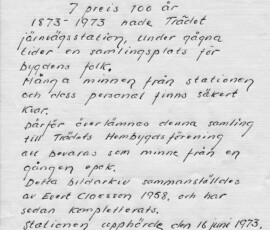 I preis 100 år
1873-1973 hade Trädet
järnvägsstation, under gågna
tider en samlingsplats för
bygdens folk.
Många minnen från stationen
och dess personal finns säkert
kvar.
Därför överlämnas denna samling
till Trädets Hembygdsförening
att bevaras som minne från en
gången epok.
Detta bildarkiv sammanställdes
av Evert Claesson 1968, och har
sedan kompletterats.
Stationen upphörde den 16 juni 1973.